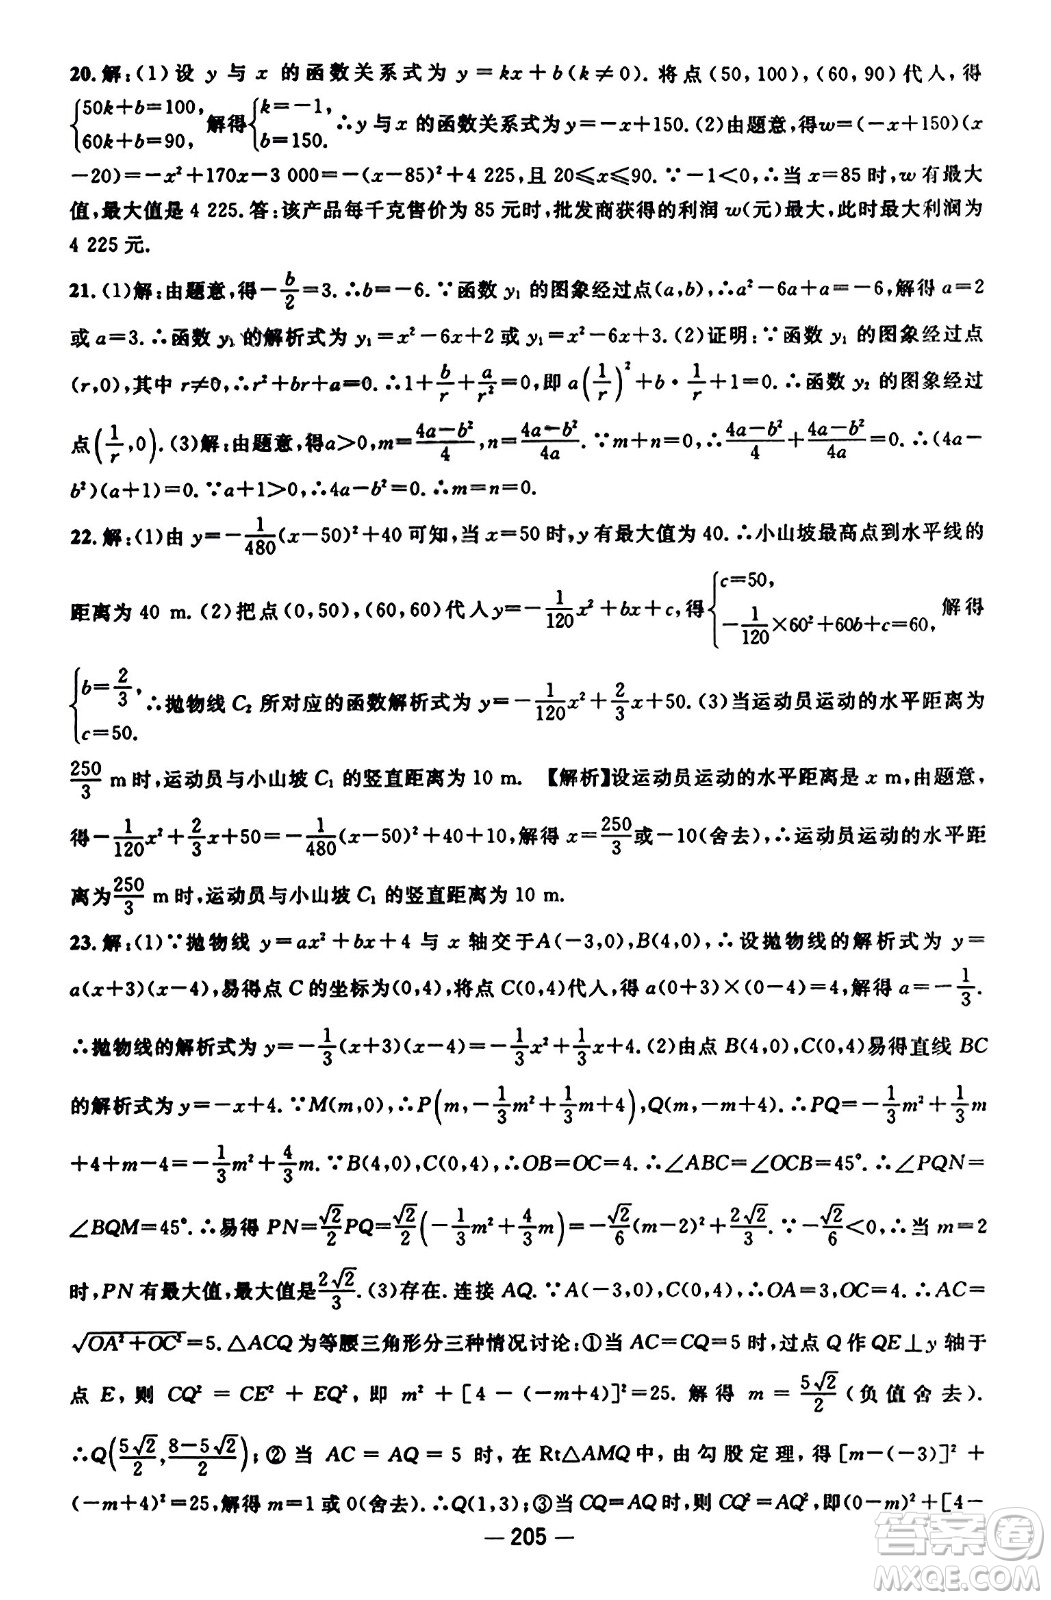 20.解:(1)设 y 与 x 的函数关系式为 y=kx+b(k≠0).将点(50,100),(60,90)代人,得
{50k+b=100, 60k+b=90, 解得{k=-1, b=150. ∴y与x的函数关系式为y=-x+150.(2)由题意,得w=(-x+150)(x
-20)=-x²+170x-3 000=-(x-85)²+4 225,且 20≤x≤90.∵-1<0,∴当 x=85 时,w有最大
值,最大值是 4 225.答:该产品每千克售价为 85 元时,批发商获得的利润 w(元)最大,此时最大利润为
4 225 元.
21.(1)解:由题意,得-b/2=3.∴b=-6.∵函数 y₁ 的图象经过点(a,b),∴a²-6a+a=-6,解得 a=2
或 a=3.∴函数 y₁ 的解析式为 y₁=x²-6x+2 或 y₁=x²-6x+3.(2)证明:∵函数 y₁ 的图象经过点
(r,0),其中 r≠0,∴r²+br+a=0.∴1+b/r+a/r²=0,即 a(1/r)²+b·1/r+1=0.∴函数 y₂ 的图象经过
点(1/r,0).(3)解:由题意,得a>0,m=(4a-b²)/4,n=(4a-b²)/4a.∵m+n=0,∴(4a-b²)/4+(4a-b²)/4a=0.∴(4a-
b²)(a+1)=0.∵a+1>0,∴4a-b²=0.∴m=n=0.
22.解:(1)由 y=-1/480(x-50)²+40 可知,当 x=50 时,y有最大值为 40.∴小山坡最高点到水平线的
距离为 40 m.(2)把点(0,50),(60,60)代人y=-1/120x²+bx+c,得{c=50, -1/120×60²+60b+c=60, 解得
{b=2/3, c=50. ∴抛物线 C₂ 所对应的函数解析式为 y=-1/120x²+2/3x+50.(3)当运动员运动的水平距离为
250/3 m时,运动员与小山坡 C₁ 的竖直距离为 10 m. 【解析】设运动员运动的水平距离是 x m,由题意,
得-1/120x²+2/3x+50=-1/480(x-50)²+40+10,解得 x=250/3或-10(舍去).∴运动员运动的水平距
离为250/3 m时,运动员与小山坡 C₁ 的竖直距离为 10 m.
23.解:(1)∵抛物线 y=ax²+bx+4 与 x 轴交于A(-3,0),B(4,0),∴设抛物线的解析式为 y=
a(x+3)(x-4),易得点 C 的坐标为(0,4),将点 C(0,4)代人,得 a(0+3)×(0-4)=4,解得 a=-1/3.
∴抛物线的解析式为 y=-1/3(x+3)(x-4)=-1/3x²+1/3x+4.(2)由点 B(4,0),C(0,4)易得直线 BC
的解析式为 y=-x+4.∵M(m,0),∴P(m,-1/3m²+1/3m+4),Q(m,-m+4).∴PQ=-1/3m²+1/3m
+4+m-4=-1/3m²+4/3m.∵B(4,0),C(0,4),∴OB=OC=4.∴∠ABC=∠OCB=45°.∴∠PQN=
∠BQM=45°.∴易得 PN=√2/2PQ=√2/2(-1/3m²+4/3m)=-√2/6(m-2)²+2√2/3.∵-√2/6<0,∴当 m=2
时,PN 有最大值,最大值是2√2/3.(3)存在.连接 AQ.∵A(-3,0),C(0,4),∴OA=3,OC=4.∴AC=
√(OA²+OC²)=5.△ACQ为等腰三角形分三种情况讨论:①当 AC=CQ=5 时,过点 Q 作 QE⊥y 轴于
点 E,则 CQ²=CE²+EQ²,即 m²+[4-(-m+4)]²=25.解得 m=5√2/2(负值舍去).
∴Q(5√2/2,(8-5√2)/2);②当 AC=AQ=5 时,在Rt△AMQ中,由勾股定理,得[m-(-3)]²+
(-m+4)²=25,解得 m=1或 0(舍去).∴Q(1,3);③当 CQ=AQ时,则 CQ²=AQ²,即(-m)²+[4-
— 205 —
答案卷
MXQE.COM